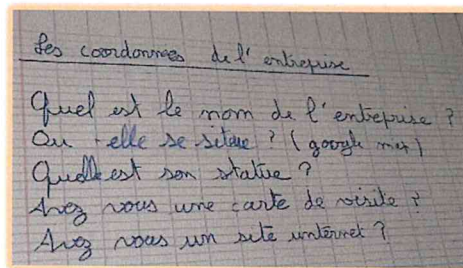 Les coordonnées de l'entreprise
Quel est le nom de l'entreprise ?
Ou -elle se situe ? (google map)
Quelle est son statue ?
Avez vous une carte de visite ?
Avez vous un site internet ?